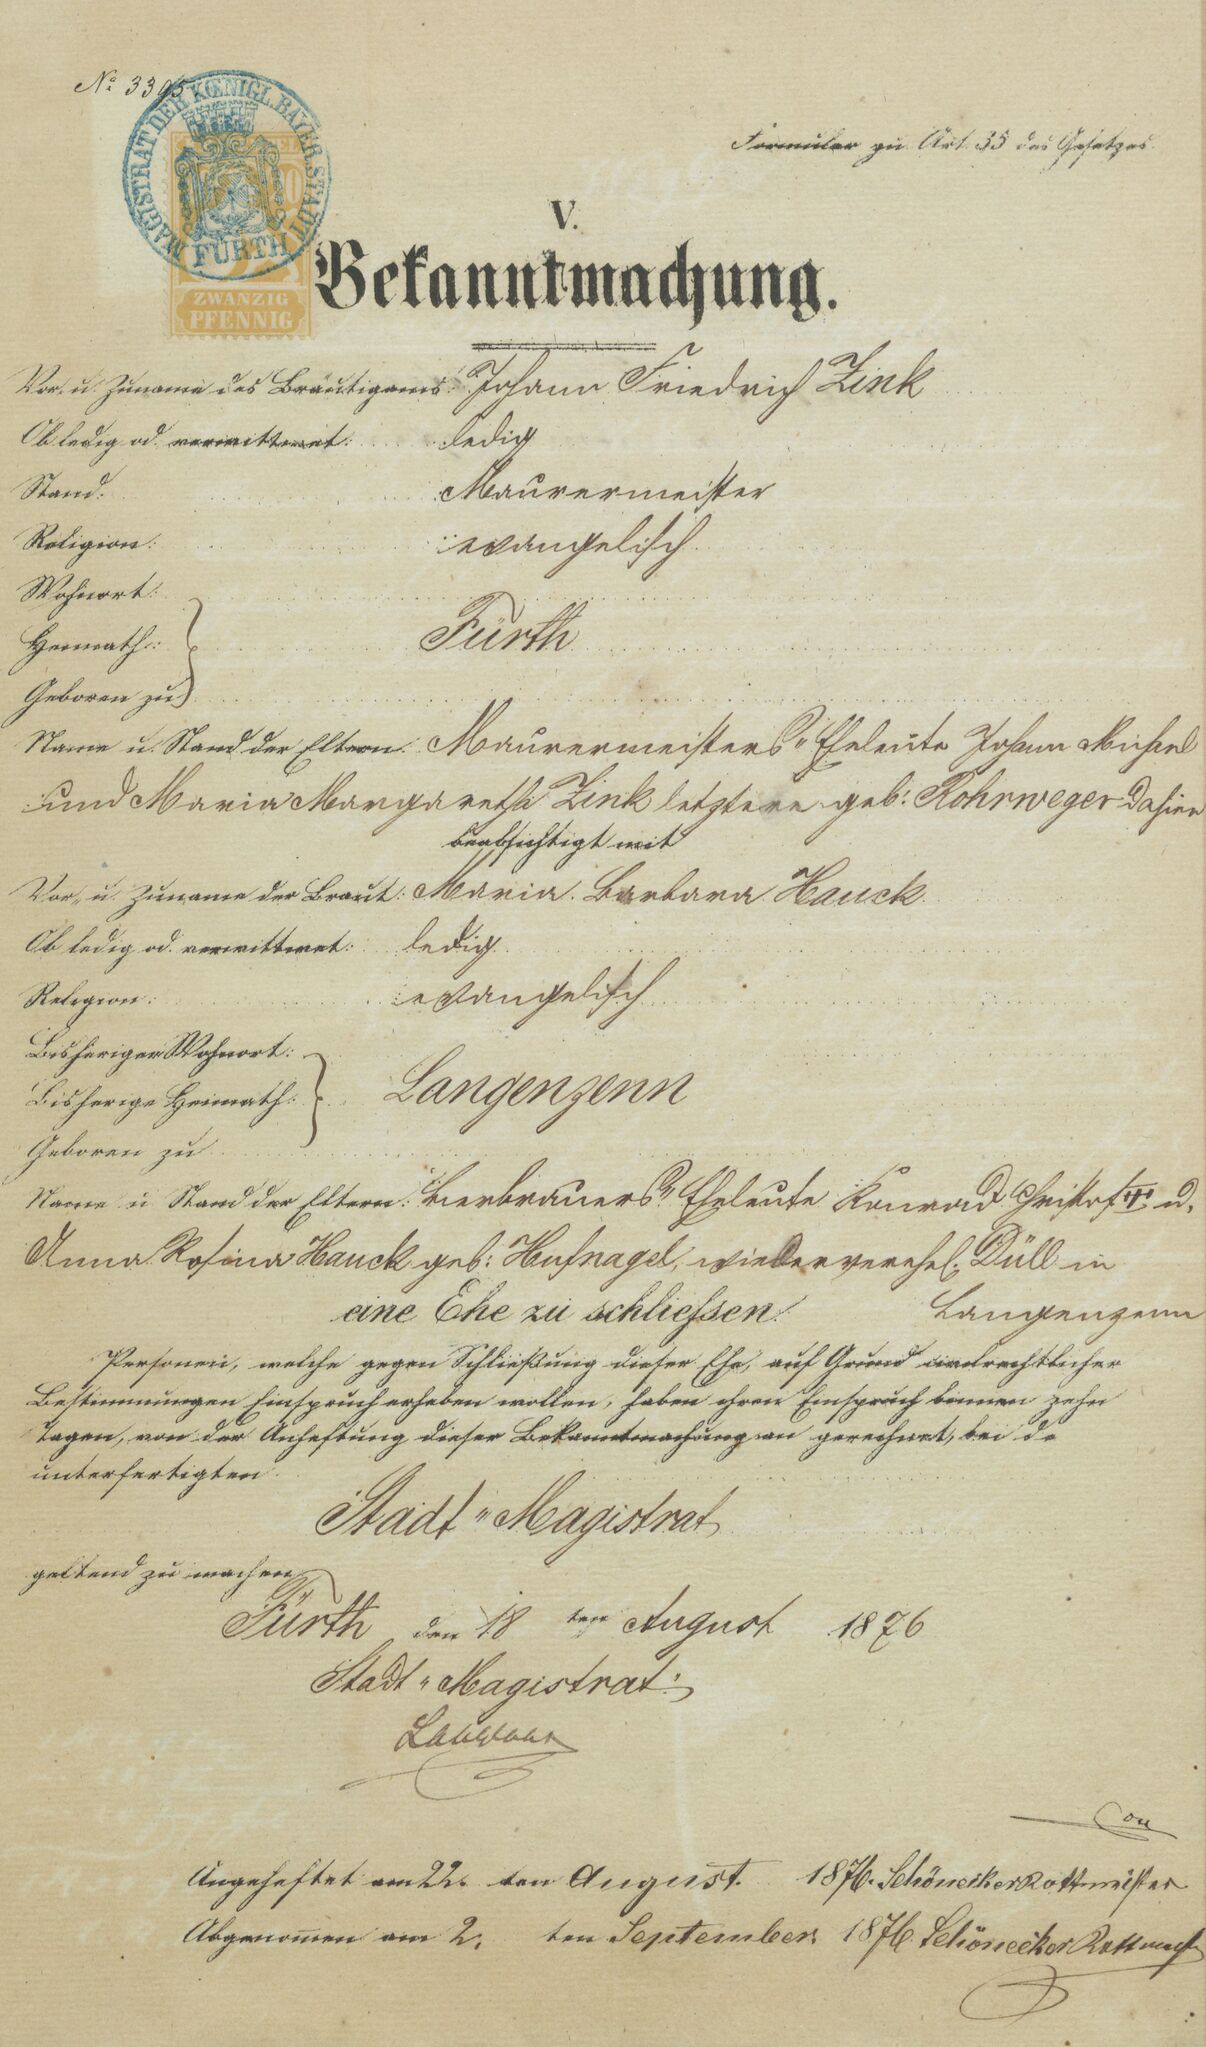 No. 3395
MAGISTRAT DER KŒNIGL. BAYER. STADT
FÜRTH
ZWANZIG
PFENNIG
Formular zu Art. 35 des Gesetzes.
V.
Bekanntmachung.
Vor- u. Zuname des Bräutigams: Johann Friedrich Zink
Ob ledig od. verwittwet: ledig
Stand: Maurermeister
Religion: evangelisch
Wohnort:
Heimath: Fürth
Geboren zu
Name u. Stand der Eltern: Maurermeisters-Eheleute Johann Michael
und Maria Margaretha Zink letztere geb: Rohrweger dahier
beabsichtigt mit
Vor- u. Zuname der Braut: Maria Barbara Hauck
Ob ledig od. verwittwet: ledig
Religion: evangelisch
Bisheriger Wohnort:
Bisherige Heimath: Langenzenn
Geboren zu
Name u. Stand der Eltern: Bierbrauers-Eheleute Konrad Christof u.
Anna Rosina Hauck geb: Hufnagel, wiederverehel. Düll in
Langenzenn
eine Ehe zu schliessen.
Personen, welche gegen Schließung dieser Ehe, auf Grund civilrechtlicher
Bestimmungen Einspruch erheben wollen, haben ihren Einspruch binnen zehn
Tagen, von der Anheftung dieser Bekanntmachung an gerechnet, bei de
unterfertigten
Stadt-Magistrat
geltend zu machen
Fürth den 18 ten August 1876
Stadt-Magistrat:
Angeheftet am 22. ten August. 1876. Schönecker Rottmeister
Abgenommen am 2. ten September 1876 Schönecker Rottmeist